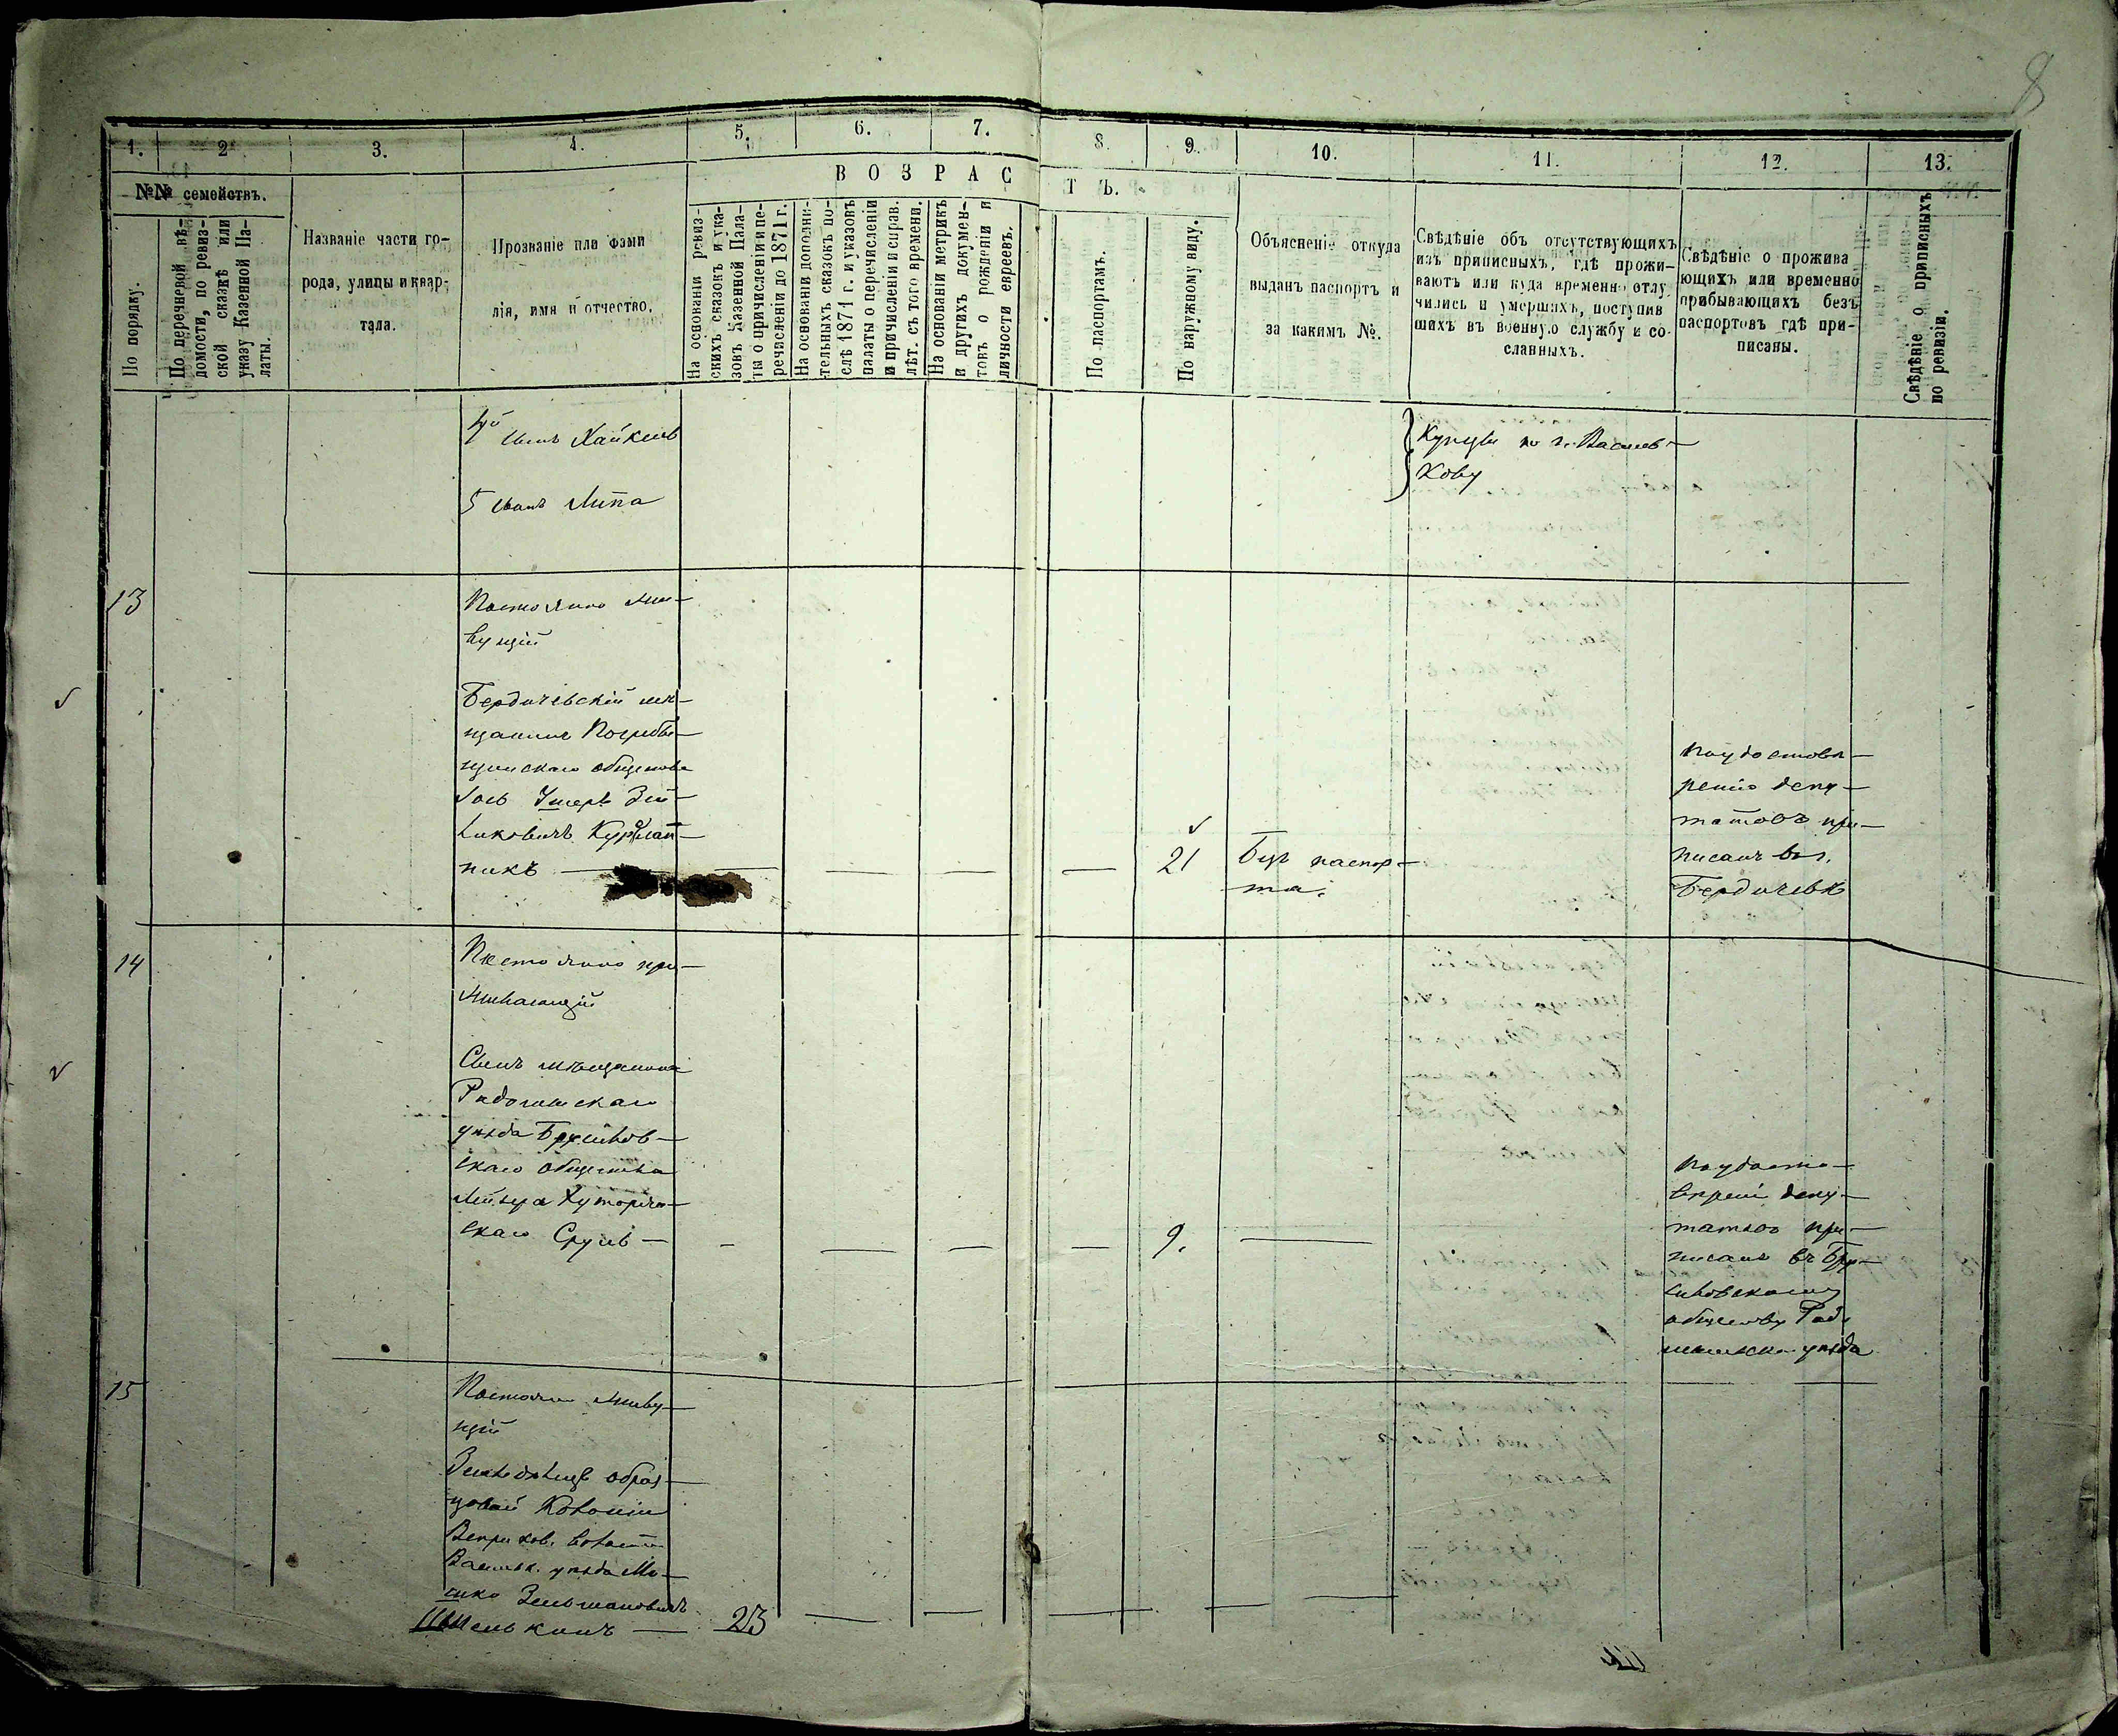 8
1.
2
3.
4.
5.
6.
7.
8.
9.
10.
11.
12.
13.
№№ семействъ.
По порядку.
По перечневой вѣ-
домости, по ревиз-
ской сказкѣ или
указу Казенной Па-
латы.
Названіе части го-
рода, улицы и квар-
тала.
Прозваніе или фами
лія, имя и отчество.
ВОЗРАСТЪ.
На основаніи ревиз-
скихъ сказокъ и ука-
зовъ Казенной Пала-
ты о причисленіи и пе-
речисленіи до 1871 г.
На основаніи дополни-
тельныхъ сказокъ по-
слѣ 1871 г. и указовъ
палаты о перечисленіи
и причисленіи и справ.
лѣт. съ того времени.
На основаніи метрикъ
и другихъ докумен-
товъ о рожденіи и
личности евреевъ.
По паспортамъ.
По наружному виду.
Объясненіе откуда
выданъ паспортъ и
за какимъ №.
Свѣдѣніе объ отсутствующихъ
изъ приписныхъ, гдѣ прожи-
ваютъ или куда временно отлу
чились и умершихъ, поступив
шихъ въ военную службу и со-
сланныхъ.
Свѣдѣніе о прожива
ющихъ или временно
прибывающихъ безъ
паспортовъ гдѣ при-
писаны.
Свѣдѣніе о приписныхъ
по ревизіи.
4й сынъ Хайкель
5 сынъ Липа
Купцы по г. Василь-
кову
13
Постоянно жи-
вущій
Бердичевскій мѣ-
щанинъ Погребы-
щенскаго общества
Іось Ушеръ Зей-
никъ
21
Безъ паспор-
та.
По удостовѣ-
ренію депу-
татовъ при-
писанъ въ г.
Бердичевѣ
14
Постоянно про-
живающій
Сынъ мѣщанина
Радомысльскаго
уѣзда Брусилов-
скаго общества
Лейзера Хуторян-
скаго Сруль
9.
По удосто-
вѣренію депу-
татовъ при-
писанъ въ Бру-
силовскому
обществу Радо
уѣзда
15
Постоянно живу-
щій
Земледѣлецъ образ-
цовой Колоніи
Веприков. волости
Васильк. уѣзда Мо-
шко Зельмановичъ
23